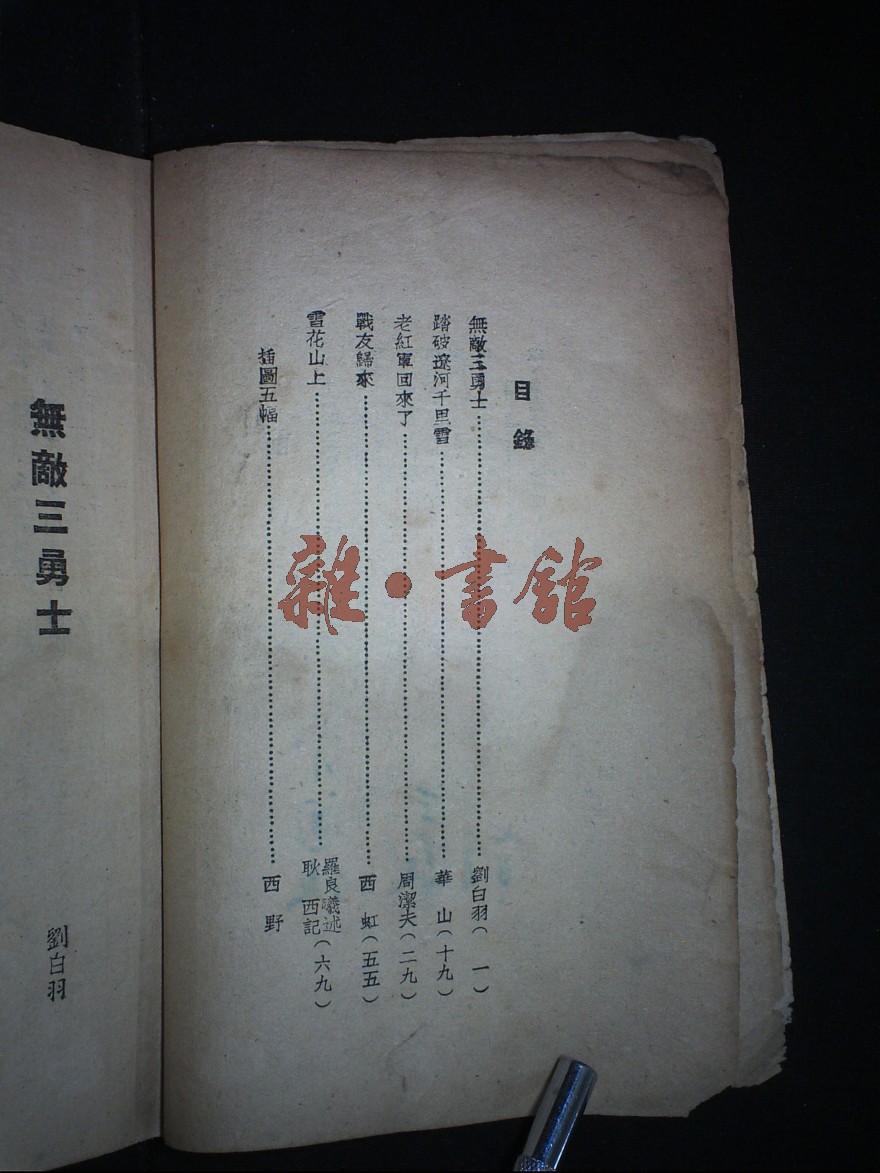 目錄
無敵三勇士……劉白羽(一)
踏破遼河千里雪……華山(十九)
老紅軍回來了……周潔夫(二九)
戰友歸來……西虹(五五)
雪花山上……羅良曦述 耿西記(六九)
插圖五幅……西野
無敵三勇士
劉白羽
雜·書舘